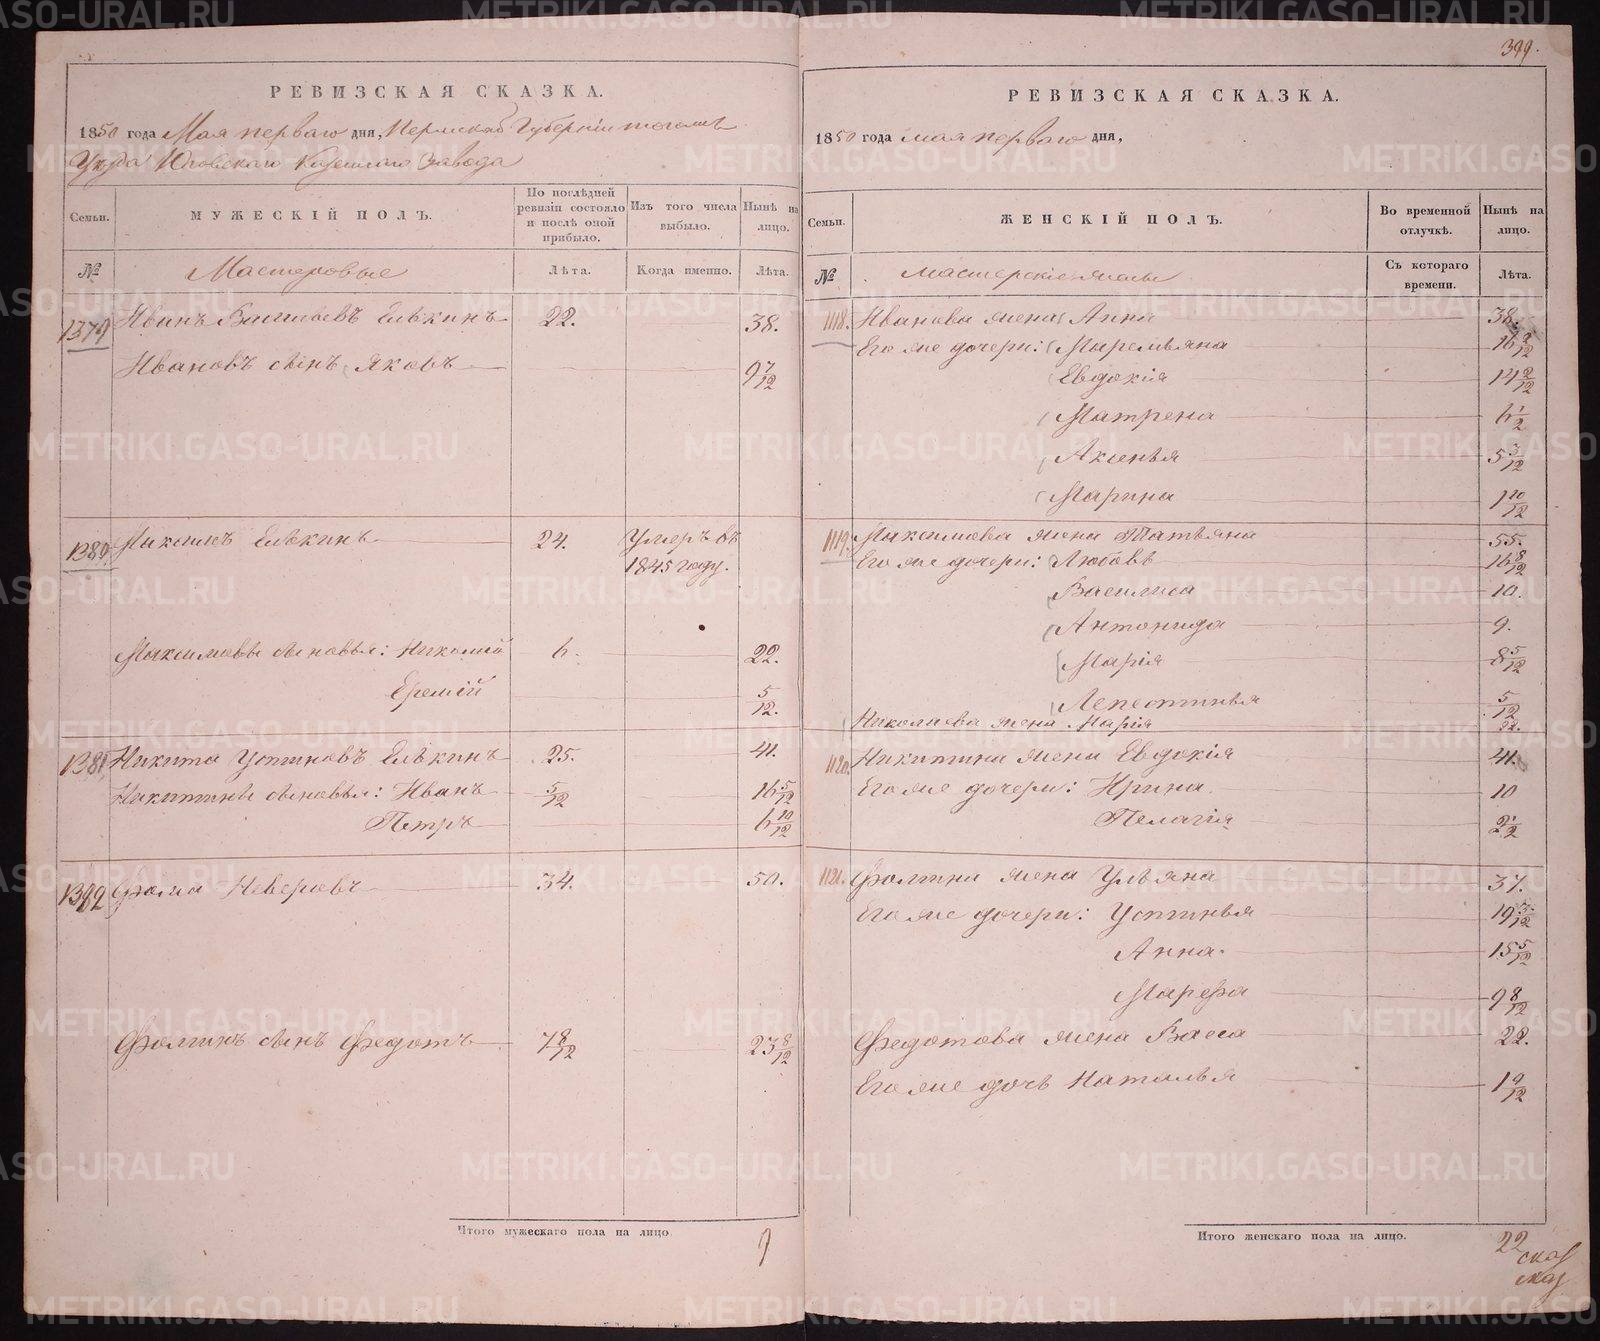 РЕВИЗСКАЯ СКАЗКА.
1850 года Мая перваго дня, Пермской Губерніи тогожъ
Уезда Юговскаго Казеннаго Завода
Семьи.
МУЖЕСКІЙ ПОЛЪ.
По послѣдней ревизіи состояло и послѣ оной прибыло.
Изъ того числа выбыло.
Нынѣ на лицо.
№
Мастеровые
Лѣта.
Когда именно.
Лѣта.
1379 Иванъ Васильевъ Елькинъ 22. 38.
Ивановъ сынъ Яковъ 9 7/12
1380. Максимъ Елькинъ 24. Умеръ въ
1845 году.
Максимовы сыновья: Николай 6. 22.
Еремѣй 5/12.
1381. Никита Устиновъ Елькинъ 25. 41.
Никитины сыновья: Иванъ 5/12 16 5/12
Петръ 6 10/12
1382 Фома Неверовъ 34. 50.
Фоминъ сынъ Федотъ 7 8/12 23 8/12
Итого мужескаго пола на лицо 9
399.
РЕВИЗСКАЯ СКАЗКА.
1850 года мая перваго дня,
Семьи.
ЖЕНСКІЙ ПОЛЪ.
Во временной отлучкѣ.
Нынѣ на лицо.
№
Мастерскіе жены
Съ котораго времени.
Лѣта.
1118. Иванова жена Анна 38.
Его же дочери: Маремьяна 16 9/12
Евдокія 14 2/12
Матрена 6 1/2
Аксенья 5 3/12
Марина 1 10/12
1119. Максимова жена Татьяна 55.
Его же дочери: Любовь 16 8/12
Василиса 10.
Антонида 9.
Марія 8 5/12
Лепестинья 5/12
Николаева жена Марія 22.
1120. Никитина жена Евдокія 41.
Его же дочери: Ирина 10
Пелагія 2 1/2
1121. Фомина жена Ульяна 37.
Его же дочери: Устинья 19 7/12
Анна. 15 5/12
Марефа 9 8/12
Федотова жена Васса 22.
Его же дочь Наталья 1 9/12
Итого женскаго пола на лицо. 22
METRIKI.GASO-URAL.RU